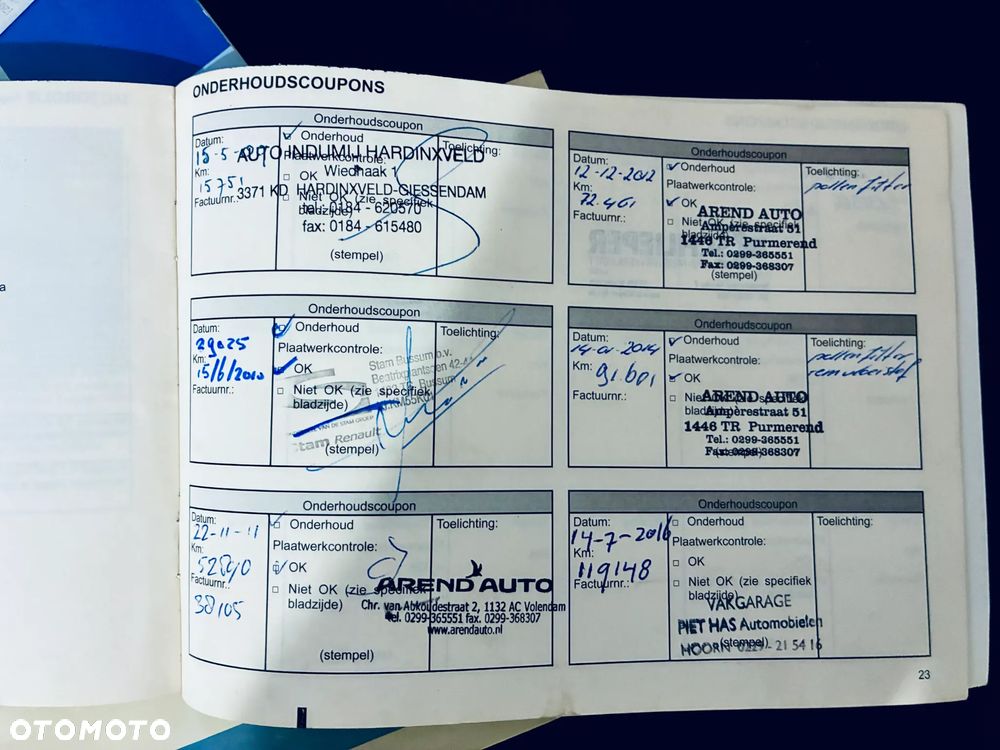 ONDERHOUDSCOUPONS
Onderhoudscoupon
Datum:
15-5-
Km:
15751
Factuurnr.:
Onderhoud
Plaatwerkcontrole:
OK
Niet OK (zie specifiek
bladzijde)
(stempel)
Toelichting:
AUTO INDUMIJ HARDINXVELD
Wiedhaak 1
3371 KD HARDINXVELD-GIESSENDAM
tel.: 0184 - 620570
fax: 0184 - 615480
Onderhoudscoupon
Datum:
29025
Km:
15/6/2010
Factuurnr.:
Onderhoud
Plaatwerkcontrole:
OK
Niet OK (zie specifiek
bladzijde)
(stempel)
Toelichting:
Stam Bussum b.v.
Bussum
VAN DE STAM GROEP
Stam Renault
Onderhoudscoupon
Datum:
22-11-11
Km:
52840
Factuurnr.:
38105
Onderhoud
Plaatwerkcontrole:
OK
Niet OK (zie specifiek
bladzijde)
(stempel)
Toelichting:
AREND AUTO
Chr. van Abkoudestraat 2, 1132 AC Volendam
tel. 0299-365551 fax. 0299-368307
www.arendauto.nl
Onderhoudscoupon
Datum:
12-12-2012
Km:
72.461
Factuurnr.:
Onderhoud
Plaatwerkcontrole:
OK
Niet OK (zie specifiek
bladzijde)
(stempel)
Toelichting:
pollenfilter
AREND AUTO
Ampèrestraat 51
1446 TR Purmerend
Tel.: 0299-365551
Fax: 0299-368307
Onderhoudscoupon
Datum:
14-01-2014
Km:
91.601
Factuurnr.:
Onderhoud
Plaatwerkcontrole:
OK
Niet OK (zie specifiek
bladzijde)
(stempel)
Toelichting:
pollenfilter
remvloeistof
AREND AUTO
Ampèrestraat 51
1446 TR Purmerend
Tel.: 0299-365551
Fax: 0299-368307
Onderhoudscoupon
Datum:
14-7-2016
Km:
119148
Factuurnr.:
Onderhoud
Plaatwerkcontrole:
OK
Niet OK (zie specifiek
bladzijde)
(stempel)
Toelichting:
VAKGARAGE
PIET HAS Automobielen
HOORN 0229 - 21 54 16
23
a
OTOMOTO